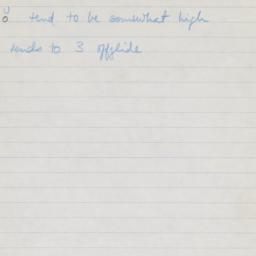 U
o tend to be somewhat high
tends to 3 offglide